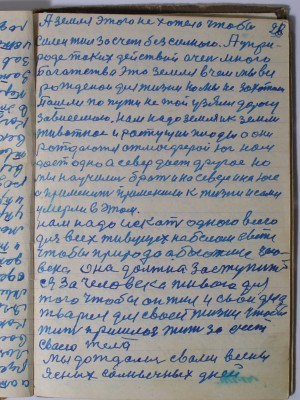 28
А земля этого не хотела чтобы
силен жил за счет безсилного. А у при-
роде таких действий очен много
богатство это земля в чом мы вси
рожденои для жизни но мы не захотели
Пошли по пути не той узяли дорогу
зависемого, нам надо земля и к земли
животное и ростущие плоды а они
родилися атмосферой юг нам
дает одно а север дает другое но
мы научилис брат и на севери и на юге
и применит применили к жизни и сами
умерли в этом.
нам надо искат одного всего
для всех живущих на белом свете
чтобы природа а божение чло-
века она должна заступит
ся за человека живого для
того чтобы он жил и свои дела
тварил для своей жизни чтобы
жит пришлос жит за счет
своего тела
мы дождалис своли весны
ясних солнычных дней